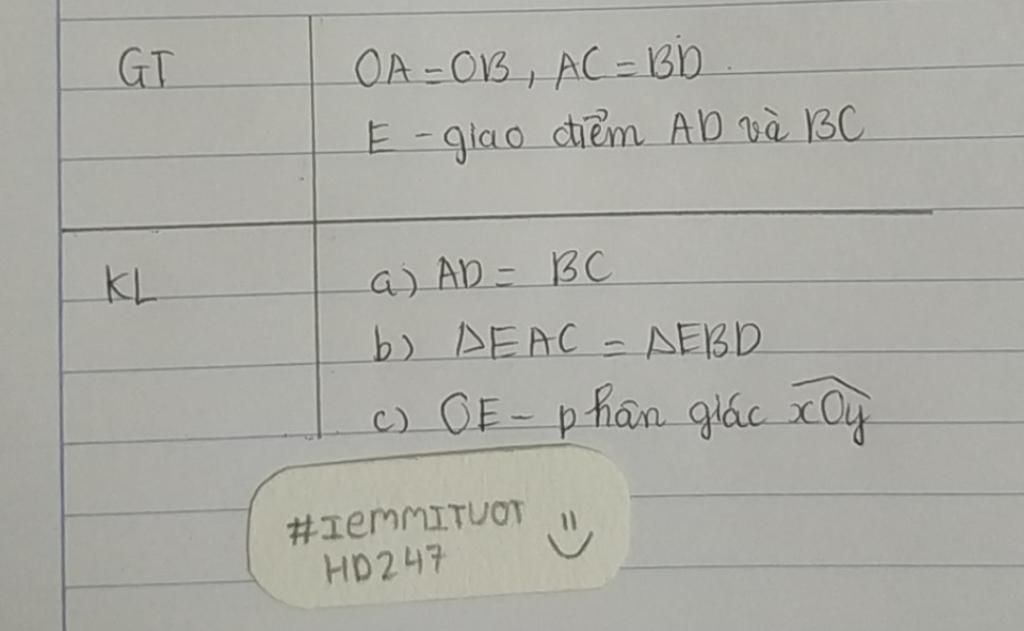 GT
OA = OB, AC = BD.
E - giao điểm AD và BC
KL
a) AD = BC
b) ΔEAC = ΔEBD
c) OE - phân giác $\widehat{xOy}$
#IemmITUOT
HD247